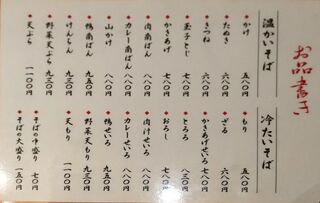 お品書き
温かいそば
かけ 五八〇円
たぬき 六八〇円
きつね 六八〇円
玉子とじ 七八〇円
かきあげ 八八〇円
肉南ばん 八八〇円
カレー南ばん 八八〇円
山かけ 八八〇円
鴨南ばん 九五〇円
けんちん 九三〇円
野菜天ぷら 九三〇円
天ぷら 一一〇〇円
冷たいそば
もり 五八〇円
ざる 六八〇円
かきあげもり 八八〇円
とろろ 七八〇円
おろし 七八〇円
肉汁せいろ 八八〇円
カレーせいろ 八八〇円
鴨せいろ 九五〇円
野菜天もり 九三〇円
天もり 一一〇〇円
そばの中盛り 七〇円
そばの大盛り 一五〇円